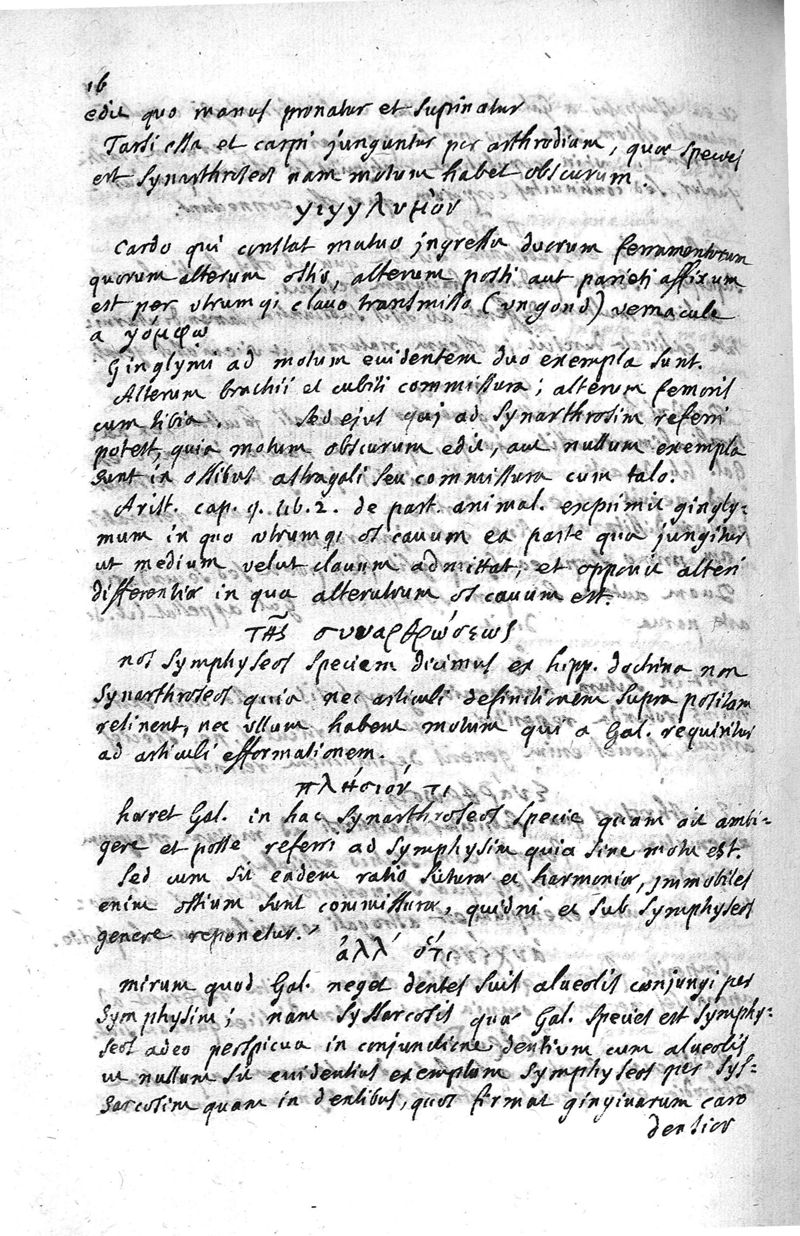 16
edit quo manus pronatur et supinatur
Tarsi ossa et carpi junguntur per arthrodiam, quae species
est synarthroseos nam motum habet obscurum.
γιγγλυμόν
Cardo qui constat mutuo ingressu duorum ferramentorum
quorum alterum ostio, alterum posti aut parieti affixum
est per utrumqi clavo transmisso (un gond) vernacule
a γόμφῳ
Ginglymi ad motum evidentem duo exempla sunt.
Alterum brachii et cubiti commissura; alterum femoris
cum tibia. Sed ejus qui ad synarthrosim referri
potest, quia motum obscurum edit, aut nullum exempla
sunt in ossibus astragali seu commissura cum talo.
Arist. cap. 9. lib. 2. de part. animal. exprimit gingly-
mum in quo utrumqi os cavum ea parte qua jungitur
ut medium velut clavum admittat, et opponit alteri
differentiae in qua alterutrum os cavum est.
τῆς συναρθρώσεως
nos symphyseos speciem dicimus ex hipp. doctrina non
synarthroseos quia nec articuli definitionem supra positam
retinent, nec ullum habent motum qui a Gal. requiritur
ad articuli efformationem.
πλησιόν τι
haeret Gal. in hac synarthroseos specie quam ait ambi-
gere et posse referri ad symphysim quia sine motu est.
Sed cum sit eadem ratio suturae et harmoniae, immobiles
enim ossium sunt commissurae, quidni et sub symphyseos
genere reponetur.
ἀλλ' ὅτι
mirum quod Gal. neget dentes suis alveolis conjungi per
symphysim; nam syssarcosis quae Gal. species est symphy-
seos adeo perspicua in conjunctione dentium cum alveolis
ut nullum sit evidentius exemplum symphyseos per sys-
sarcosim quam in dentibus, quos firmat gingivarum caro
dentior